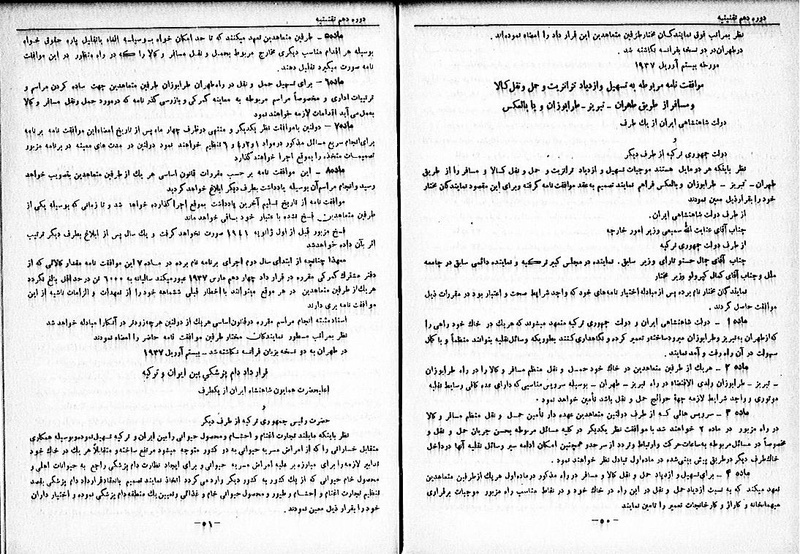 دوره دهم تقنینیه
نظر بمراتب فوق نمایندگان مختار طرفین متعاهدین این قرار داد را امضاء نموده‌اند.
در طهران در دو نسخه بفرانسه نگاشته شد.
مورخه بیستم آوریل ۱۹۳۷
موافقت نامه مربوطه به تسهیل و ازدیاد ترانزیت و حمل و نقل کالا
و مسافر از طریق طهران - تبریز - طرابوزان و یا بالعکس
دولت شاهنشاهی ایران از یک طرف
و
دولت جمهوری ترکیه از طرف دیگر
نظر باینکه هر دو مایل هستند موجبات تسهیل و ازدیاد ترانزیت و حمل و نقل کالا و مسافر را از طریق
طهران - تبریز - طرابوزان و بالعکس فراهم نمایند تصمیم به عقد موافقت نامه گرفته و برای این مقصود نمایندگان مختار
خود را بقرار ذیل معین نمودند
از طرف دولت شاهنشاهی ایران.
جناب آقای عنایت الله سمیعی وزیر امور خارجه
از طرف دولت جمهوری ترکیه
جناب آقای جمال حسنو تارای وزیر سابق. نماینده در مجلس کبیر ترکیه و نماینده دائمی سابق در جامعه
ملل و جناب آقای کمال کپرولو وزیر مختار
نمایندگان مختار نام برده پس از مبادله اختیار نامه‌های خود که واجد شرایط صحت و اعتبار بود در مقررات ذیل
موافقت حاصل کردند.
ماده ۱ - دولت شاهنشاهی ایران و دولت جمهوری ترکیه متعهد میشوند که هریک در خاک خود راهی را
که از طهران به تبریز و طرابوزان میرود ساخته و تعمیر کرده و نگاهداری کنند بطوریکه وسائل نقلیه بتوانند منظماً و با کمال
سهولت در آن راه رفت و آمد نمایند.
ماده ۲ - هریک از طرفین متعاهدین در خاک خود حمل و نقل منظم مسافر و کالا را در راه طهران
- تبریز - طرابوزان ولدی الاقتضاء در راه تبریز - طهران - بوسیله سرویس مناسبی که دارای عده کافی وسایط نقلیه
موتوری و واجد شرایط لازمه جهة حوائج حمل و نقل باشد تأمین خواهد نمود.
ماده ۳ - سرویس هائی که از طرف دولتین متعاهدین عهده دار تأمین حمل و نقل منظم مسافر و کالا
در راه مزبور در ماده ۲ خواهند شد با موافقت نظر یکدیگر در کلیه مسائل مربوطه بحسن جریان حمل و نقل و
مخصوصاً در مسائل مربوطه به ساعات حرکت و ارتباط و تردد از سرحد همچنین امکان ادامه سیر وسائل نقلیه آنها در داخل
خاک طرف دیگر در طریق پیش بینی شده در ماده اول تبادل نظر خواهند نمود.
ماده ۴ - برای تسهیل و ازدیاد حمل و نقل کالا و مسافر در راه مذکور در ماده اول هریک از طرفین متعاهدین
تعهد میکند که به نسبت ازدیاد حمل و نقل در این راه در خاک خود و در نقاط مناسب راه مزبور موجبات برقراری
میهمانخانه و گاراژ و کارخانجات تعمیر را تامین نمایند
-۵۰-
دوره دهم تقنینیه
ماده ۵ - طرفین متعاهدین تعهد میکنند که تا حد امکان خواه بوسیله الغاء یا تقلیل پاره حقوق خواه
بوسیله هر اقدام مناسب دیگری مخارج مربوط بحمل و نقل مسافر و کالا را که در راه منظور در این موافقت
نامه صورت میگیرد تقلیل دهند.
ماده ۶ - برای تسهیل حمل و نقل در راه طهران طرابوزان طرفین متعاهدین جهت ساده کردن مراسم و
ترتیبات اداری و مخصوصاً مراسم مربوطه به معاینه گمرکی و بازرسی گذرنامه که در مورد حمل و نقل مسافر و کالا
بعمل می آید اقدامات لازمه خواهند نمود
ماده ۷ - دولتین با موافقت نظر یکدیگر و منتهی در ظرف چهار ماه پس از تاریخ امضاء این موافقت نامه برنامه
برای انجام سریع مسائل مذکور در مواد ۱ و ۲ و ۴ و ۶ تنظیم خواهند نمود دولتین در مدت های معینه در برنامه مزبور
تصمیمات متخذه را بموقع اجرا خواهند گذارد
ماده ۸ - این موافقت نامه بر حسب مقررات قانون اساسی هر یک از طرفین متعاهدین بتصویب خواهد
رسید و انجام مراسم آن بوسیله یادداشت بطرف دیگر ابلاغ خواهد گردید
موافقت نامه از تاریخ تسلیم آخرین یادداشت بموقع اجرا گذارده خواهد شد و تا زمانی که بوسیله یکی از
طرفین متعاهدین فسخ نشده با اعتبار خود باقی خواهد ماند
فسخ مزبور قبل از اول ژانویه ۱۹۴۱ صورت نخواهد گرفت و یک سال پس از ابلاغ بطرف دیگر ترتیب
اثر بآن داده خواهد شد
معهذا چنانچه از ابتدای سال دوم اجرای برنامه نام برده در ماده ۷ این موافقت نامه مقدار کالائی که از
دفتر مشترک گمرکی مقرره در قرار داد چهار دهم مارس ۱۹۳۷ عبور میکند سالیانه به ۶۰۰۰ تن در حداقل بالغ نگردد
هریک از طرفین متعاهدین در هر موقع میتوانند با اخطار قبلی ششماهه خود را از تعهدات و الزامات ناشیه از این
موافقت نامه بری دارند
اسناد مثبته انجام مراسم مقرره در قانون اساسی هریک از دولتین هر چه زودتر در آنکارا مبادله خواهد شد
نظر بمراتب مسطور نمایندگان مختار طرفین موافقت نامه حاضر را امضاء نمودند
در طهران به دو نسخه بزبان فرانسه نگاشته شد - بیستم آوریل ۱۹۳۷
قرارداد دام پزشکی بین ایران و ترکیه
اعلیحضرت همایون شاهنشاه ایران از یکطرف
و
حضرت رئیس جمهوری ترکیه از طرف دیگر
نظر باینکه مایلند تجارت اغنام و احشام و محصول حیوانی را بین ایران و ترکیه تسهیل نموده و بوسیله همکاری
متقابل خساراتی را که از امراض مسریه حیوانی به دو کشور متوجه میشود مرتفع ساخته و متقابلاً هریک در خاک خود
تدابیر لازمه را برای مبارزه بر علیه امراض مسریه حیوانی و برای ایجاد نظارت دام پزشکی راجع به حیوانات اهلی و
محصول خام حیوانی که از یک کشور به کشور دیگر وارد می گردد اتخاذ نمایند تصمیم بانعقاد قرارداد دام پزشکی بقصد
تنظیم تجارت اغنام و احشام و طیور و محصول حیوانی خام و غذائی و تعیین یک منطقه دام پزشکی نموده و اختیار داران
خود را بقرار ذیل معین نمودند.
-۵۱-